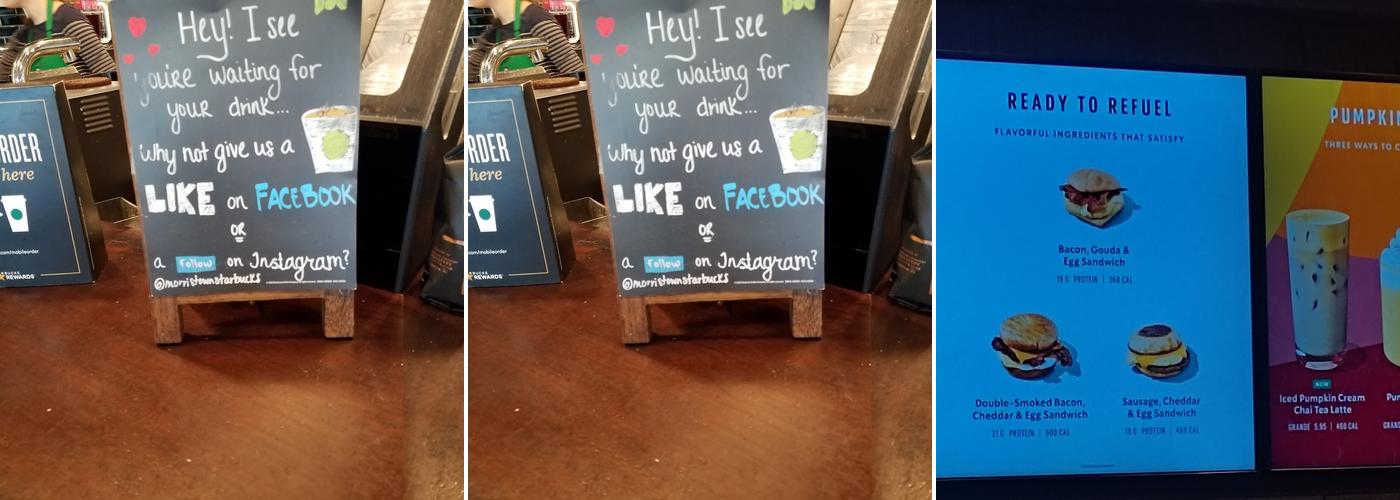 Hey! I see
you're waiting for
your drink...
Why not give us a
LIKE on FACEBOOK
OR
a Follow on Instagram?
@morristownstarbucks
RDER
here
.com/mobileorder
RBUCKS
REWARDS
Hey! I see
you're waiting for
your drink...
Why not give us a
LIKE on FACEBOOK
OR
a Follow on Instagram?
@morristownstarbucks
RDER
here
com/mobileorder
BUCKS
REWARDS
READY TO REFUEL
FLAVORFUL INGREDIENTS THAT SATISFY
Bacon, Gouda &
Egg Sandwich
19 G PROTEIN | 360 CAL
Double-Smoked Bacon,
Cheddar & Egg Sandwich
21 G PROTEIN | 500 CAL
Sausage, Cheddar
& Egg Sandwich
18 G PROTEIN | 480 CAL
PUMPKIN
THREE WAYS TO C
NEW
Iced Pumpkin Cream
Chai Tea Latte
GRANDE 5.95 | 460 CAL
Pu
GRAND